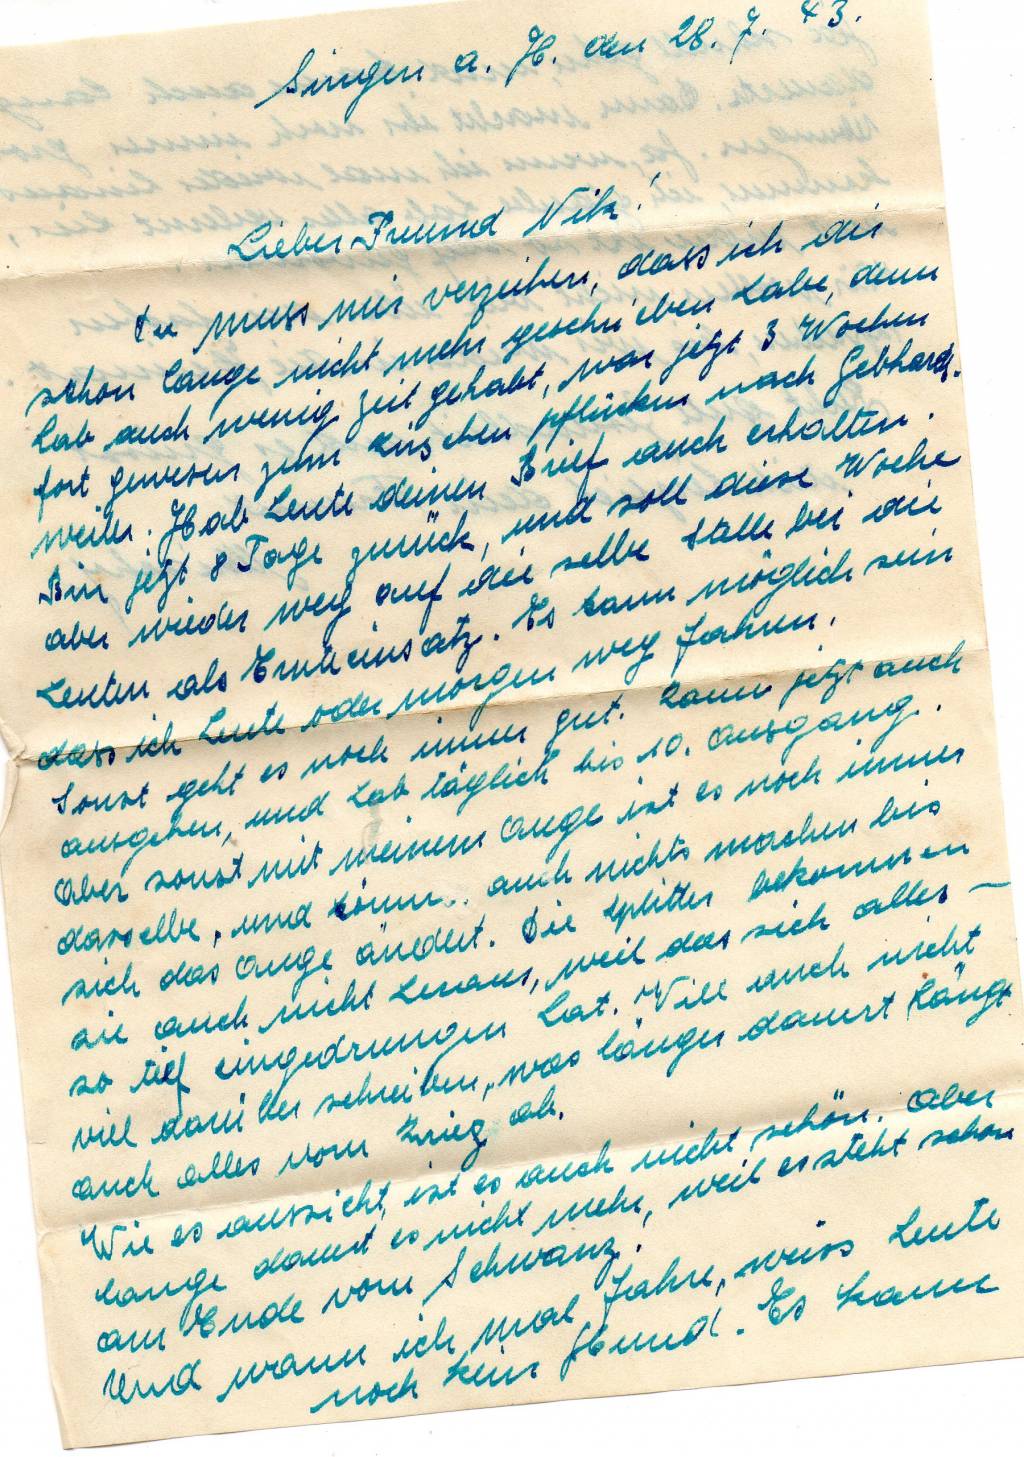 Singen a. H. den 28. 7. 43.
Lieber Freund Nik!
Du muss mir verzeihen, dass ich dir
schon lange nicht mehr geschrieben habe, denn
hab auch wenig zeit gehabt, war jetzt 3 Wochen
fort gewesen zum kirschen pflücken nach Gebhards-
weiler. Hab heute deinen Brief auch erhalten.
Bin jetzt 8 Tage zurück, und soll diese Woche
aber wieder weg auf die selbe Stelle bei die
Leuten als Ernteeinsatz. Es kann möglich sein
dass ich heute oder morgen weg fahren.
Sonst geht es noch immer gut. Kann jetzt auch
ausgehen, und hab täglich bis 10. Ausgang.
Aber sonst mit meinem Auge ist es noch immer
dasselbe, und könn.. auch nichts machen bis
sich das Auge ändert. Die Splitter bekommen
sie auch nicht heraus, weil das sich alles —
so tief eingedrungen hat. Will auch nicht
viel darüber schreiben, was länger dauert hängt
auch alles vom Krieg ab.
Wie es aussicht, ist es auch nicht schön. Aber
lange dauert es nicht mehr, weil es steht schon
am Ende vom Schwanz.
Und wann ich mal fahre, weiss heute
noch kein Hund. Es kann